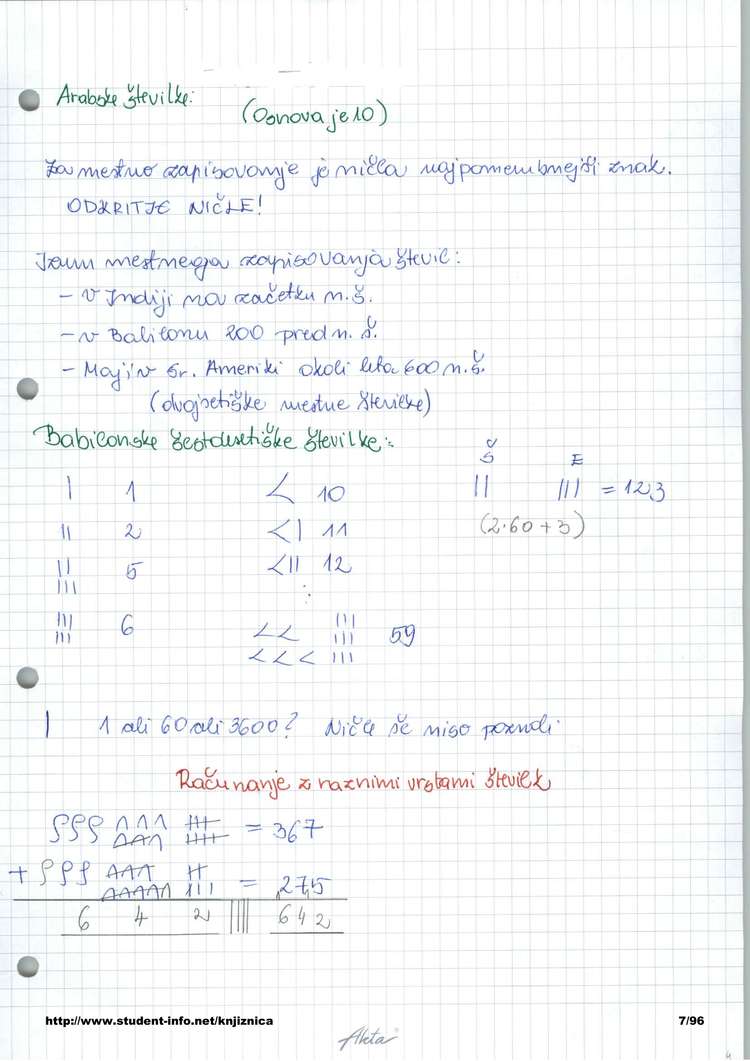 Arabske številke:
(Osnova je 10)
Za mestno zapisovanje je ničla najpomembnejši znak.
ODKRITJE NIČLE!
Izum mestnega zapisovanja števil:
- v Indiji na začetku n.š.
- v Babilonu 200 pred n. š.
- Maji v Sr. Ameriki okoli leta 600 n.š.
(dvajsetiške mestne številke)
Babilonske šestdesetiške številke:
Š E
| 1 < 10 || ||| = 123
|| 2 <| 11 (2·60 + 3)
|| ||| 5 <|| 12
||| ||| 6 << <<< ||| ||| ||| 59
| 1 ali 60 ali 3600? Ničle še niso poznali.
Računanje z raznimi vrstami številk
= 367
+ = 275
6 4 2 |||| 6 4 2
http://www.student-info.net/knjiznica 7/96
Akta